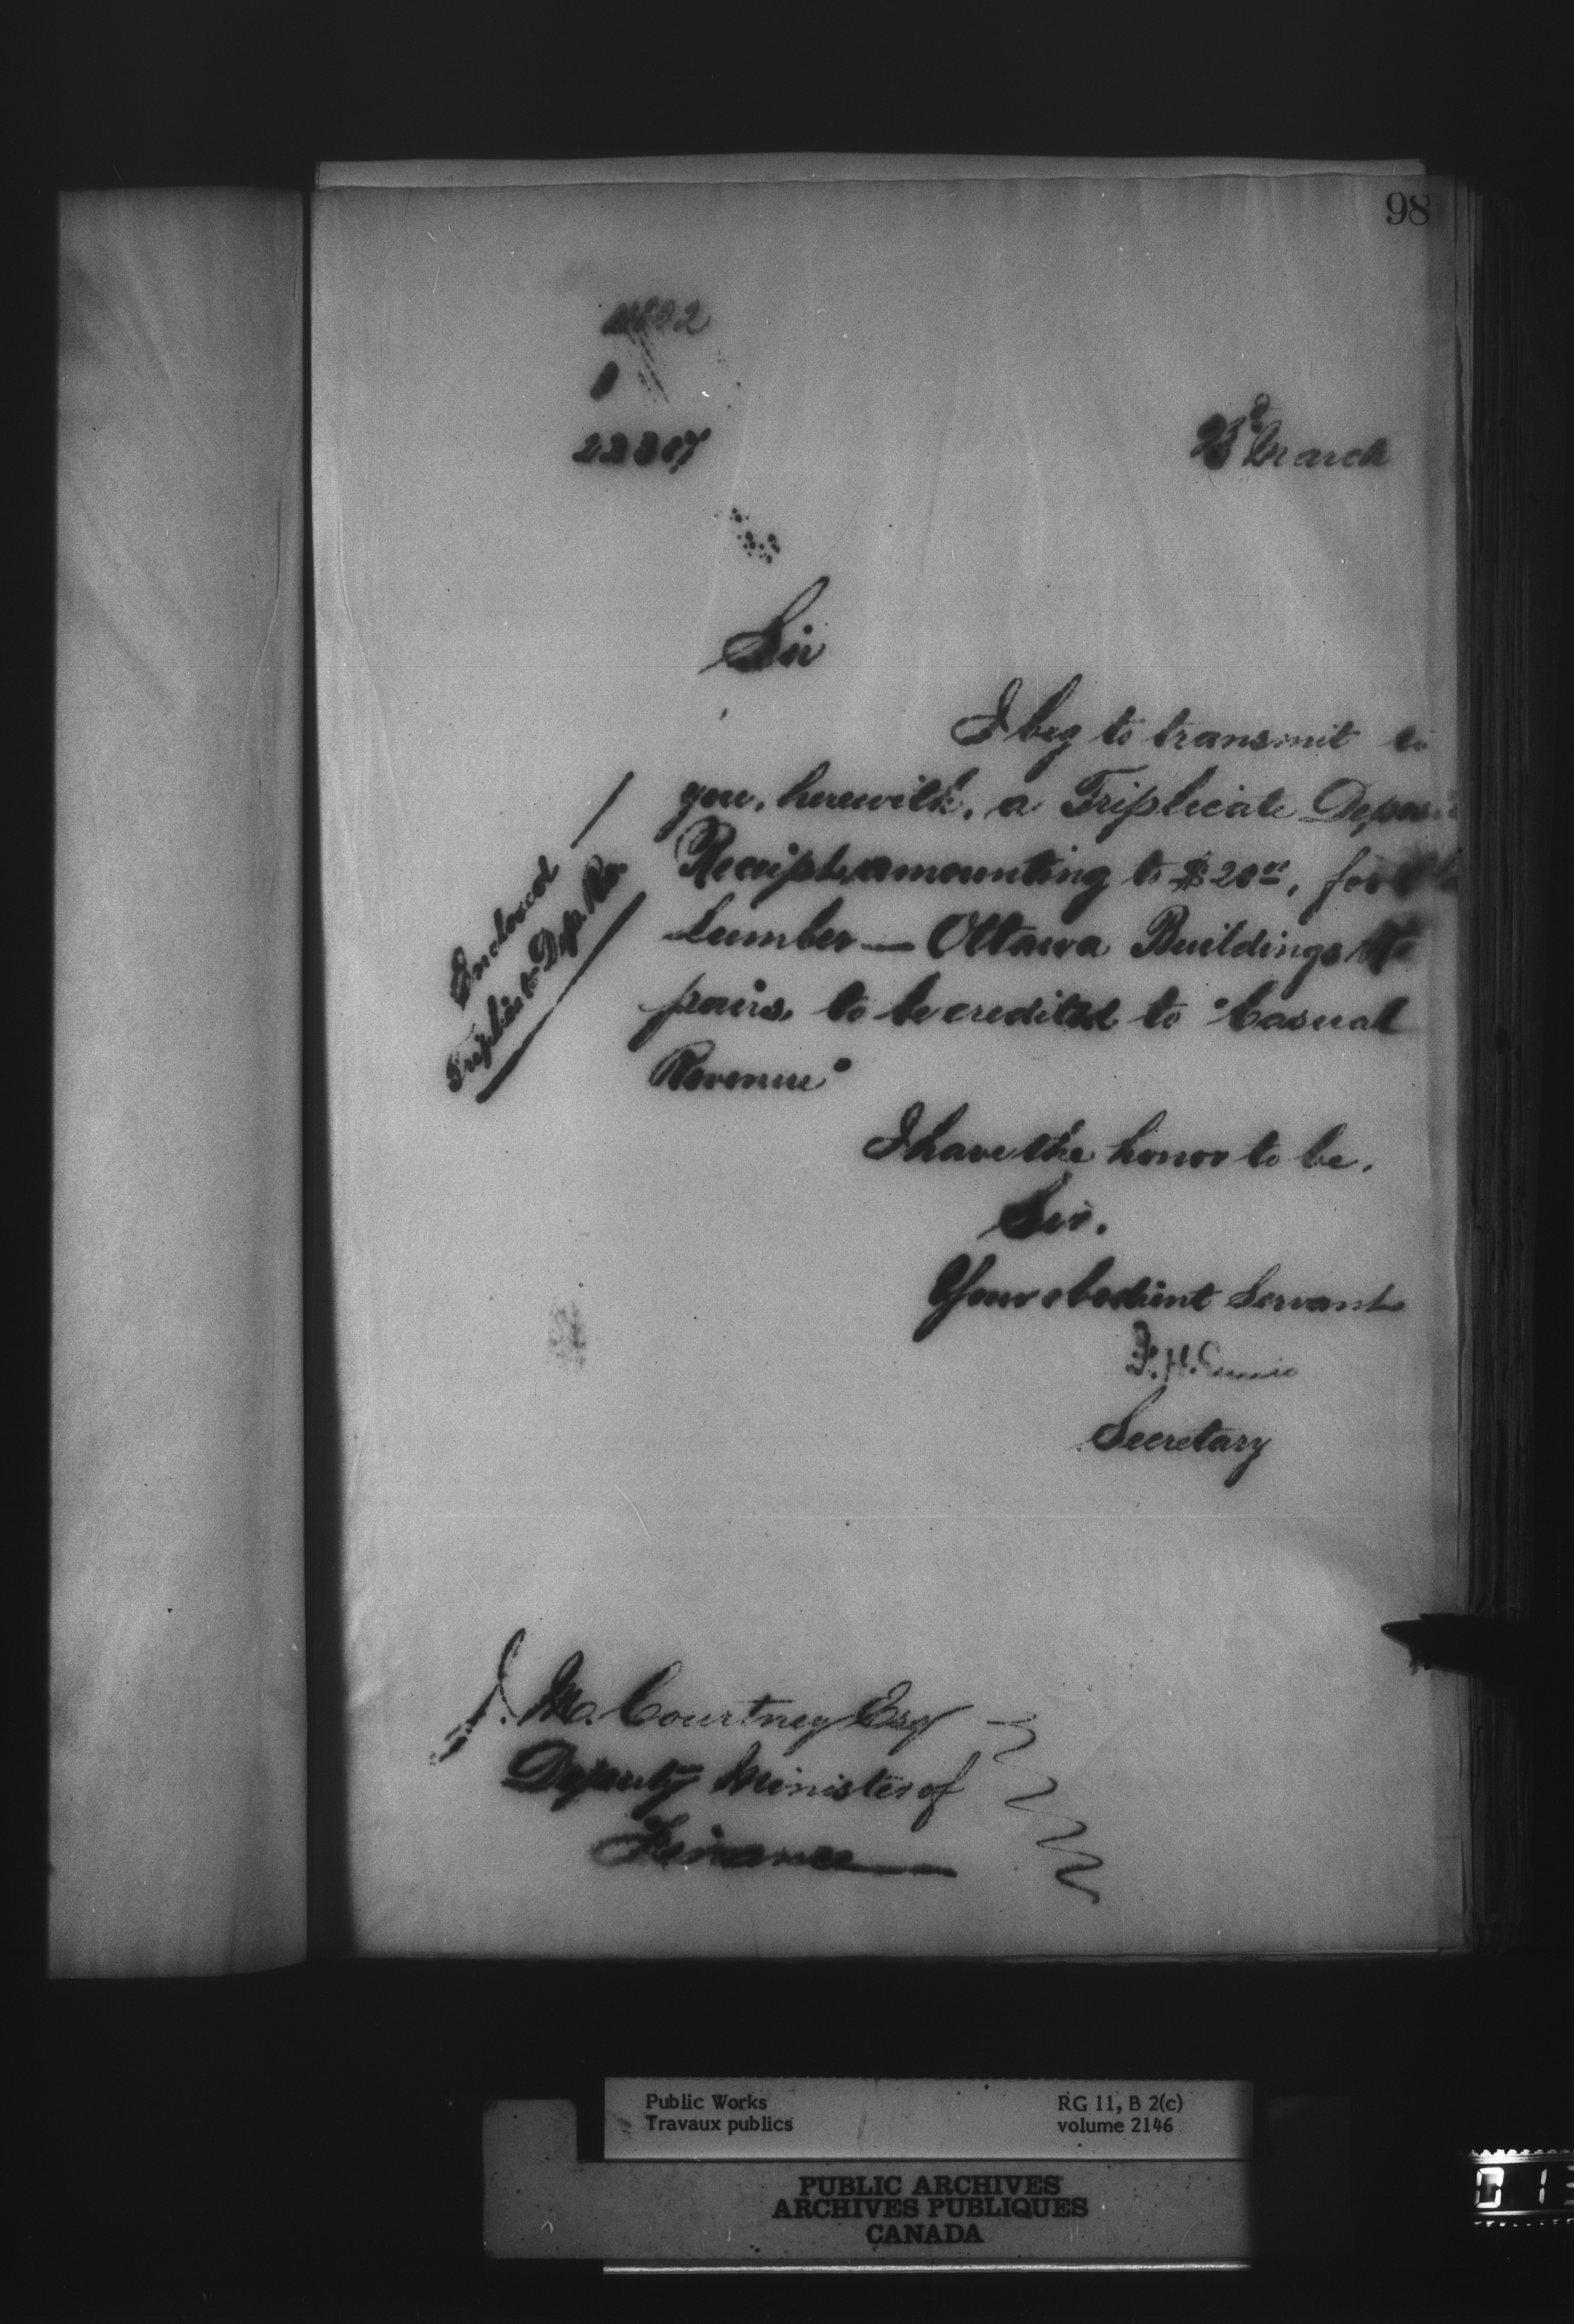 98
22307
March
Sir
I beg to transmit to
you, herewith, a Triplicate Deposit
Receipt, amounting to $20.00, for
Lumber — Ottawa Buildings Re
pairs, to be credited to "Casual
Revenue"
Enclosed
Triplicate Dep. Re.
I have the honor to be,
Sir,
Your obedient Servant
F. H. Ennis
Secretary
J. M. Courtney Esq
Deputy Minister of
Finance
Public Works
Travaux publics
RG 11, B 2(c)
volume 2146
PUBLIC ARCHIVES
ARCHIVES PUBLIQUES
CANADA